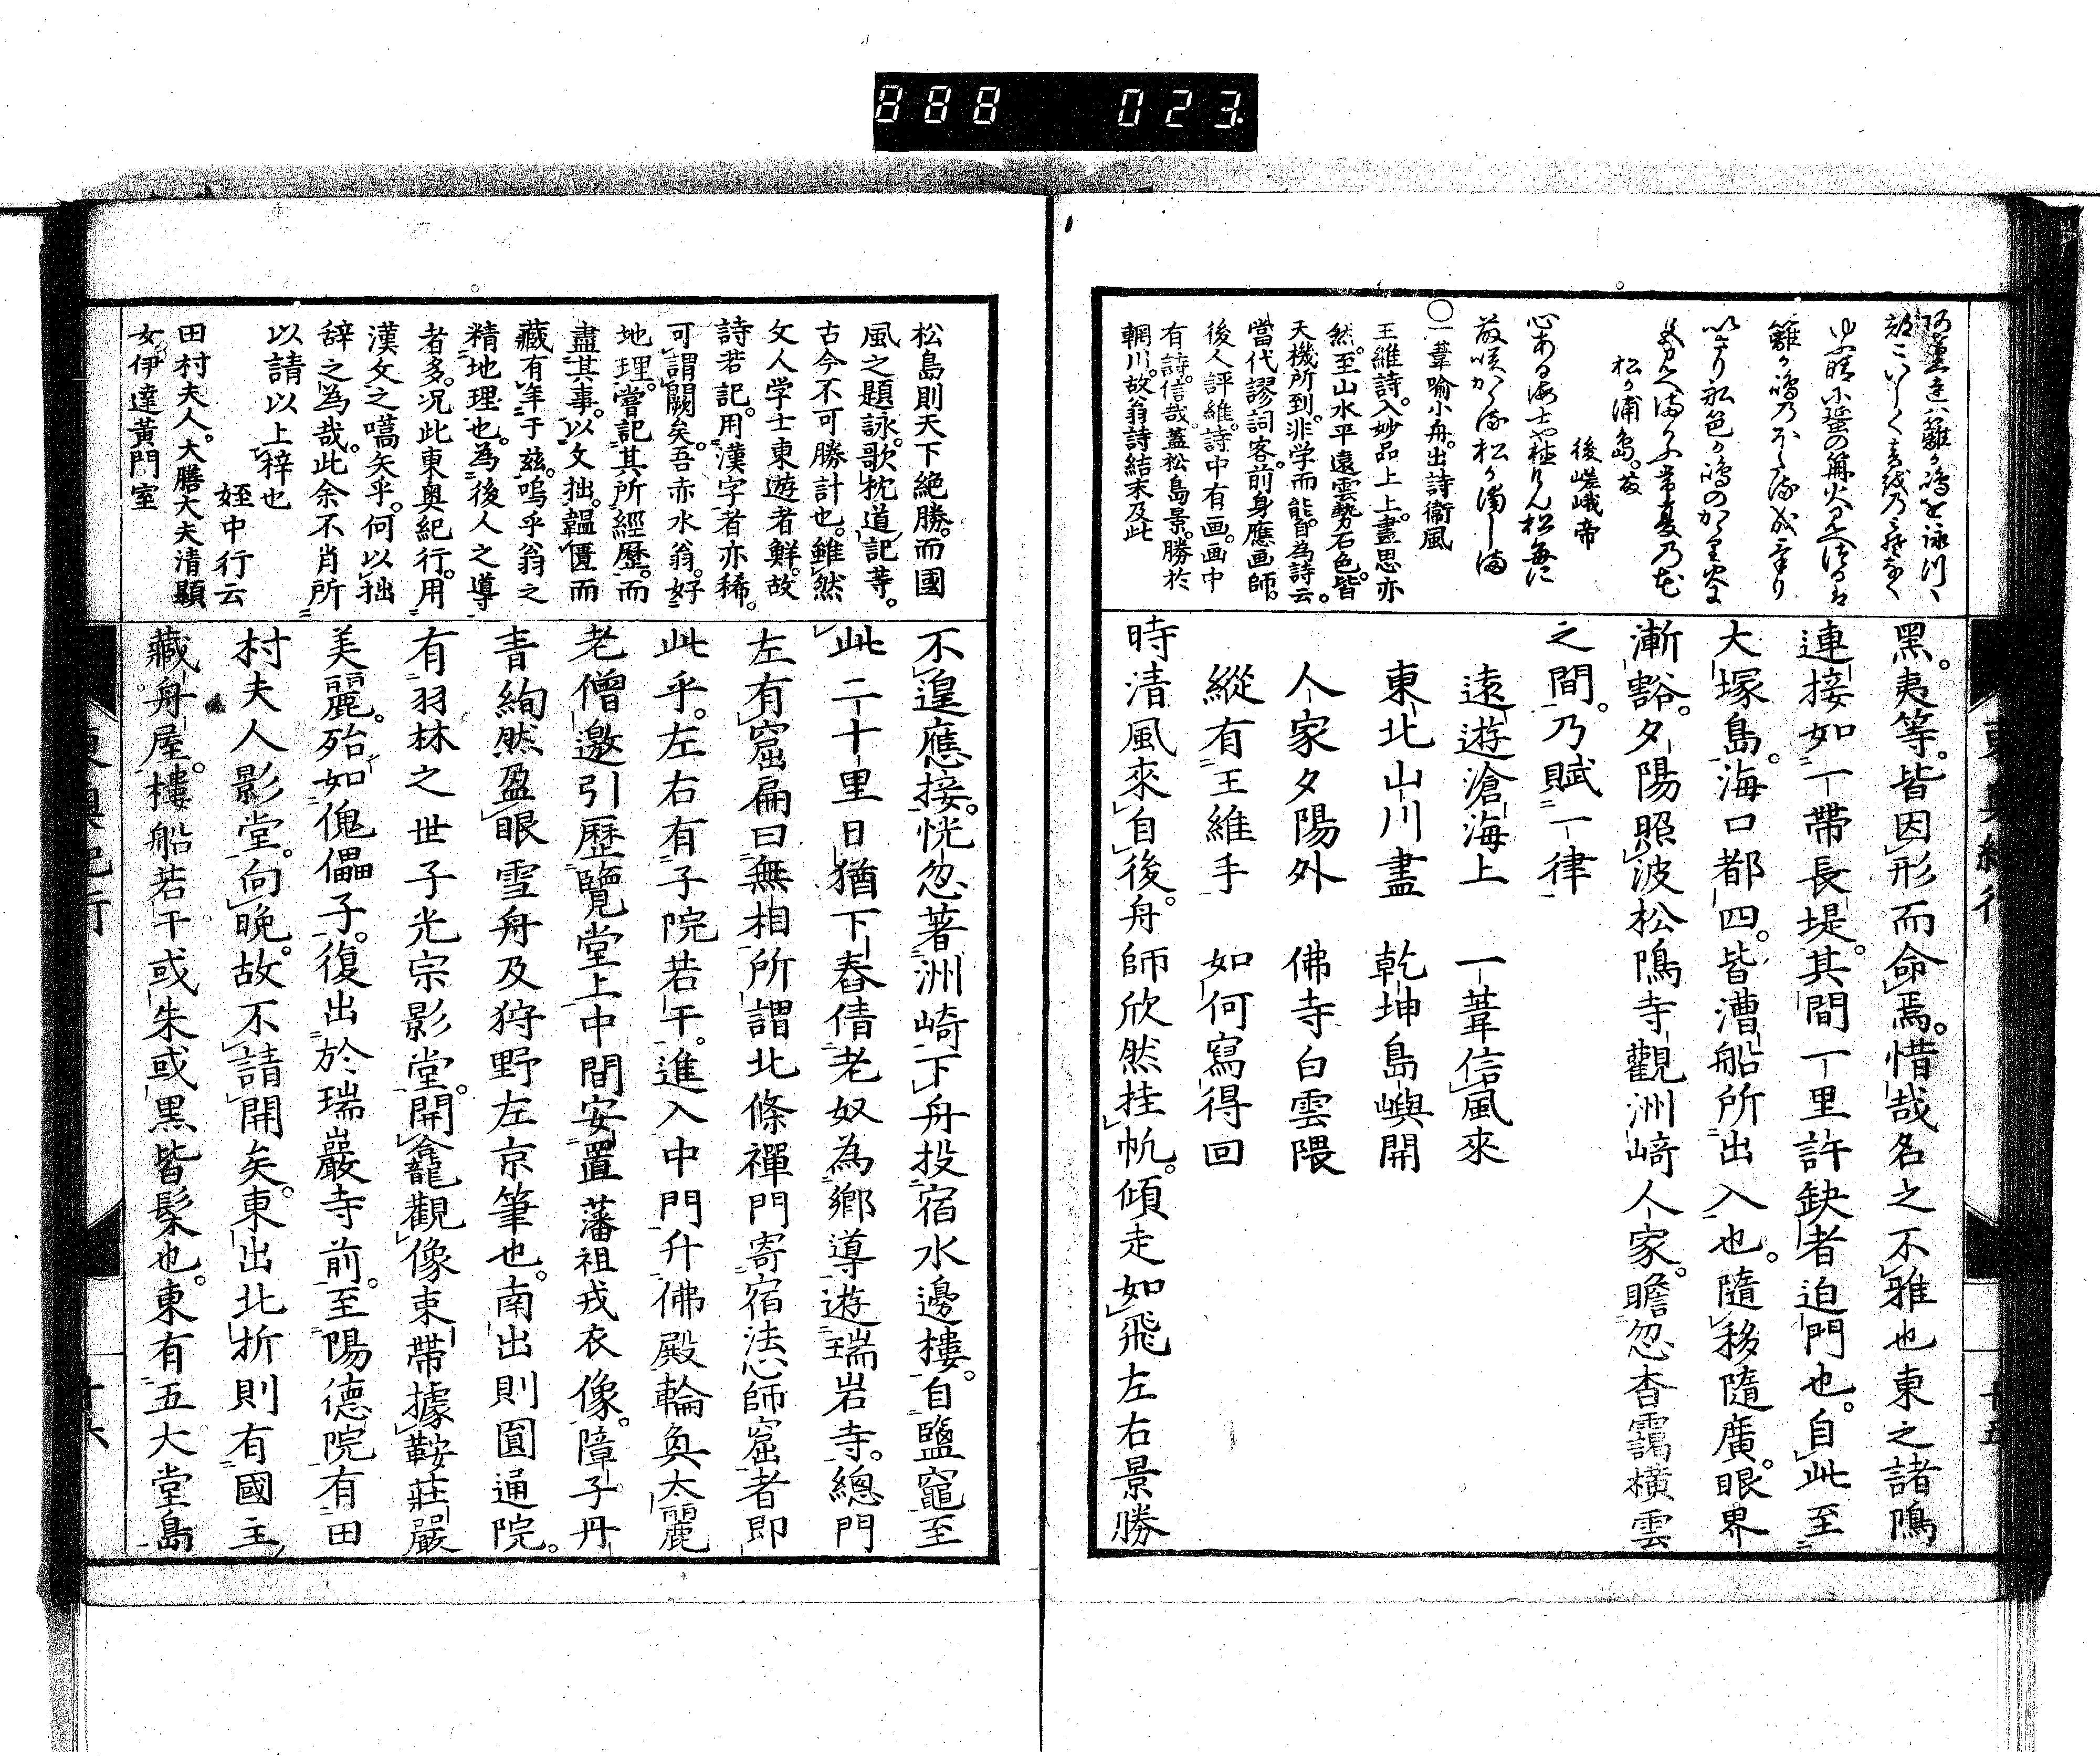 888 023
後嵯峨帝
一葦喻小舟。出詩衞風
王維詩。入妙品上上。畫思亦
然。至山水平遠雲勢石色。皆
天機所到。非学而能。自為詩云。
當代謬詞客。前身應画師。
後人評維。詩中有画。画中
有詩。信哉。蓋松島景。勝於
輞川。故翁詩結末及此
黑。夷等。皆因形而命焉。惜哉名之不雅也東之諸隝
連接如一帶長堤。其間一里許缺者迫門也。自此至
大塚島。海口都四。皆漕船所出入也。隨移隨廣。眼界
漸豁。夕陽照波松隝寺觀洲﨑人家。瞻忽杳靄橫雲
之間。乃賦一律
遠遊滄海上 一葦信風來
東北山川盡 乾坤島嶼開
人家夕陽外 佛寺白雲隈
縱有王維手 如何寫得回
時清風來自後。舟師欣然挂帆。傾走如飛左右景勝
松島則天下絶勝。而國
風之題詠。歌枕道記等。
古今不可勝計也。雖然
文人学士東遊者鮮。故
詩若記。用漢字者亦稀。
可謂闕矣。吾赤水翁。好
地理。嘗記其所經歷。而
盡其事。以文拙。韞匱而
藏有年于兹。嗚乎翁之
精地理也。為後人之導
者多。况此東奥紀行。用
漢文之嚆矢乎。何以拙
辞之為哉。此余不肖所
以請以上梓也
姪中行云
田村夫人。大膳大夫清顯
女伊達黃門室
不遑應接。恍忽著洲崎下舟投宿水邊樓。自鹽竈至
此二十里日猶下舂倩老奴為鄉導遊瑞岩寺。總門
左有窟扁曰無相所謂北條禪門寄宿法心師窟者即
此乎。左右有子院若干。進入中門升佛殿輪奐太麗
老僧邀引歷覽堂上中間安置藩祖戎衣像。障子丹
青絢然盈眼雪舟及狩野左京筆也。南出則圓通院。
有羽林之世子光宗影堂。開龕觀像束帶據鞍莊嚴
美麗。殆如傀儡子。復出於瑞巖寺前。至陽德院有田
村夫人影堂。向晚。故不請開矣。東出北折則有國主
藏舟屋。樓船若干或朱或黑皆髹也。東有五大堂島